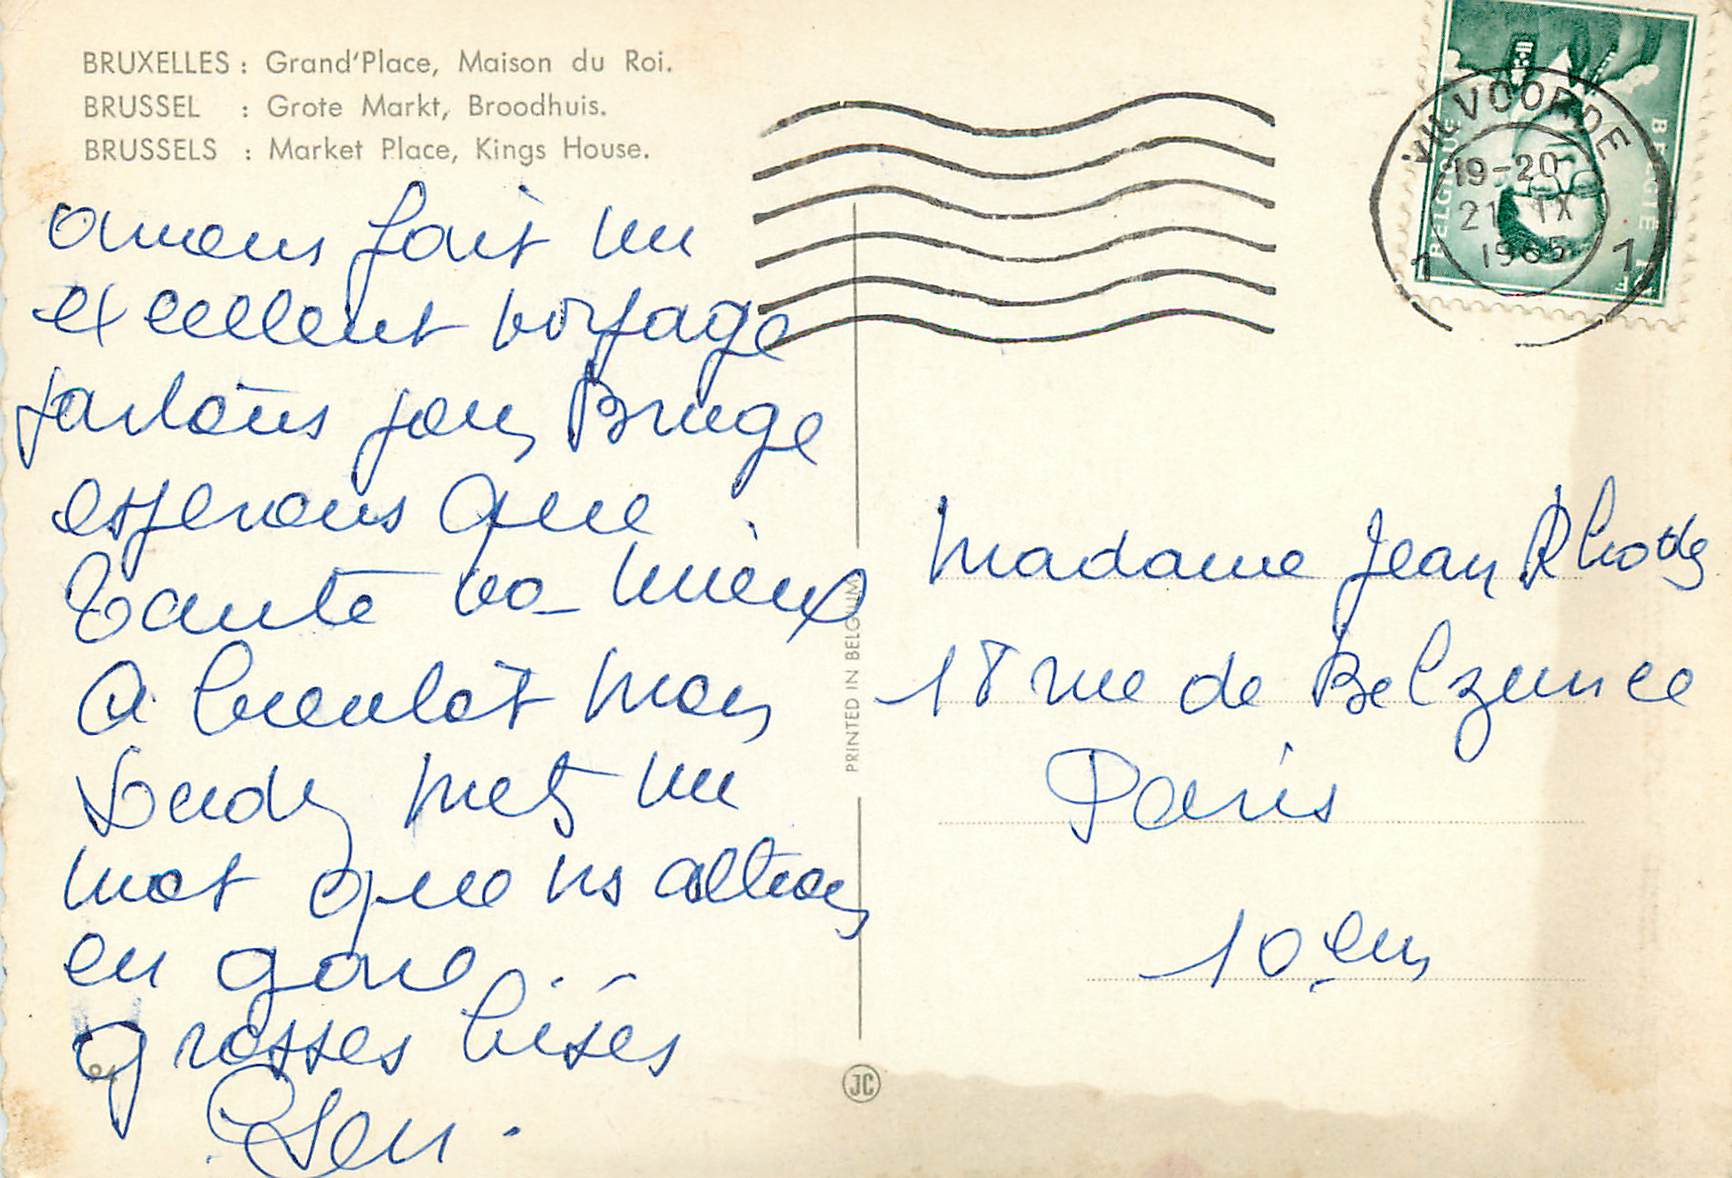 BRUXELLES : Grand'Place, Maison du Roi.
BRUSSEL : Grote Markt, Broodhuis.
BRUSSELS : Market Place, Kings House.
avons fait un
excellent voyage
partons pour Bruge
esperons que
Tante va mieux
A bientôt mon
mets un
mot que ns attend
en gare
grosses bises
VILVOORDE
19-20
21 IX
1965
1
1
BELGIQUE
BELGIË
PRINTED IN BELGIUM
JC
Madame Jean Rhody
18 rue de Belzunce
Paris
10 em